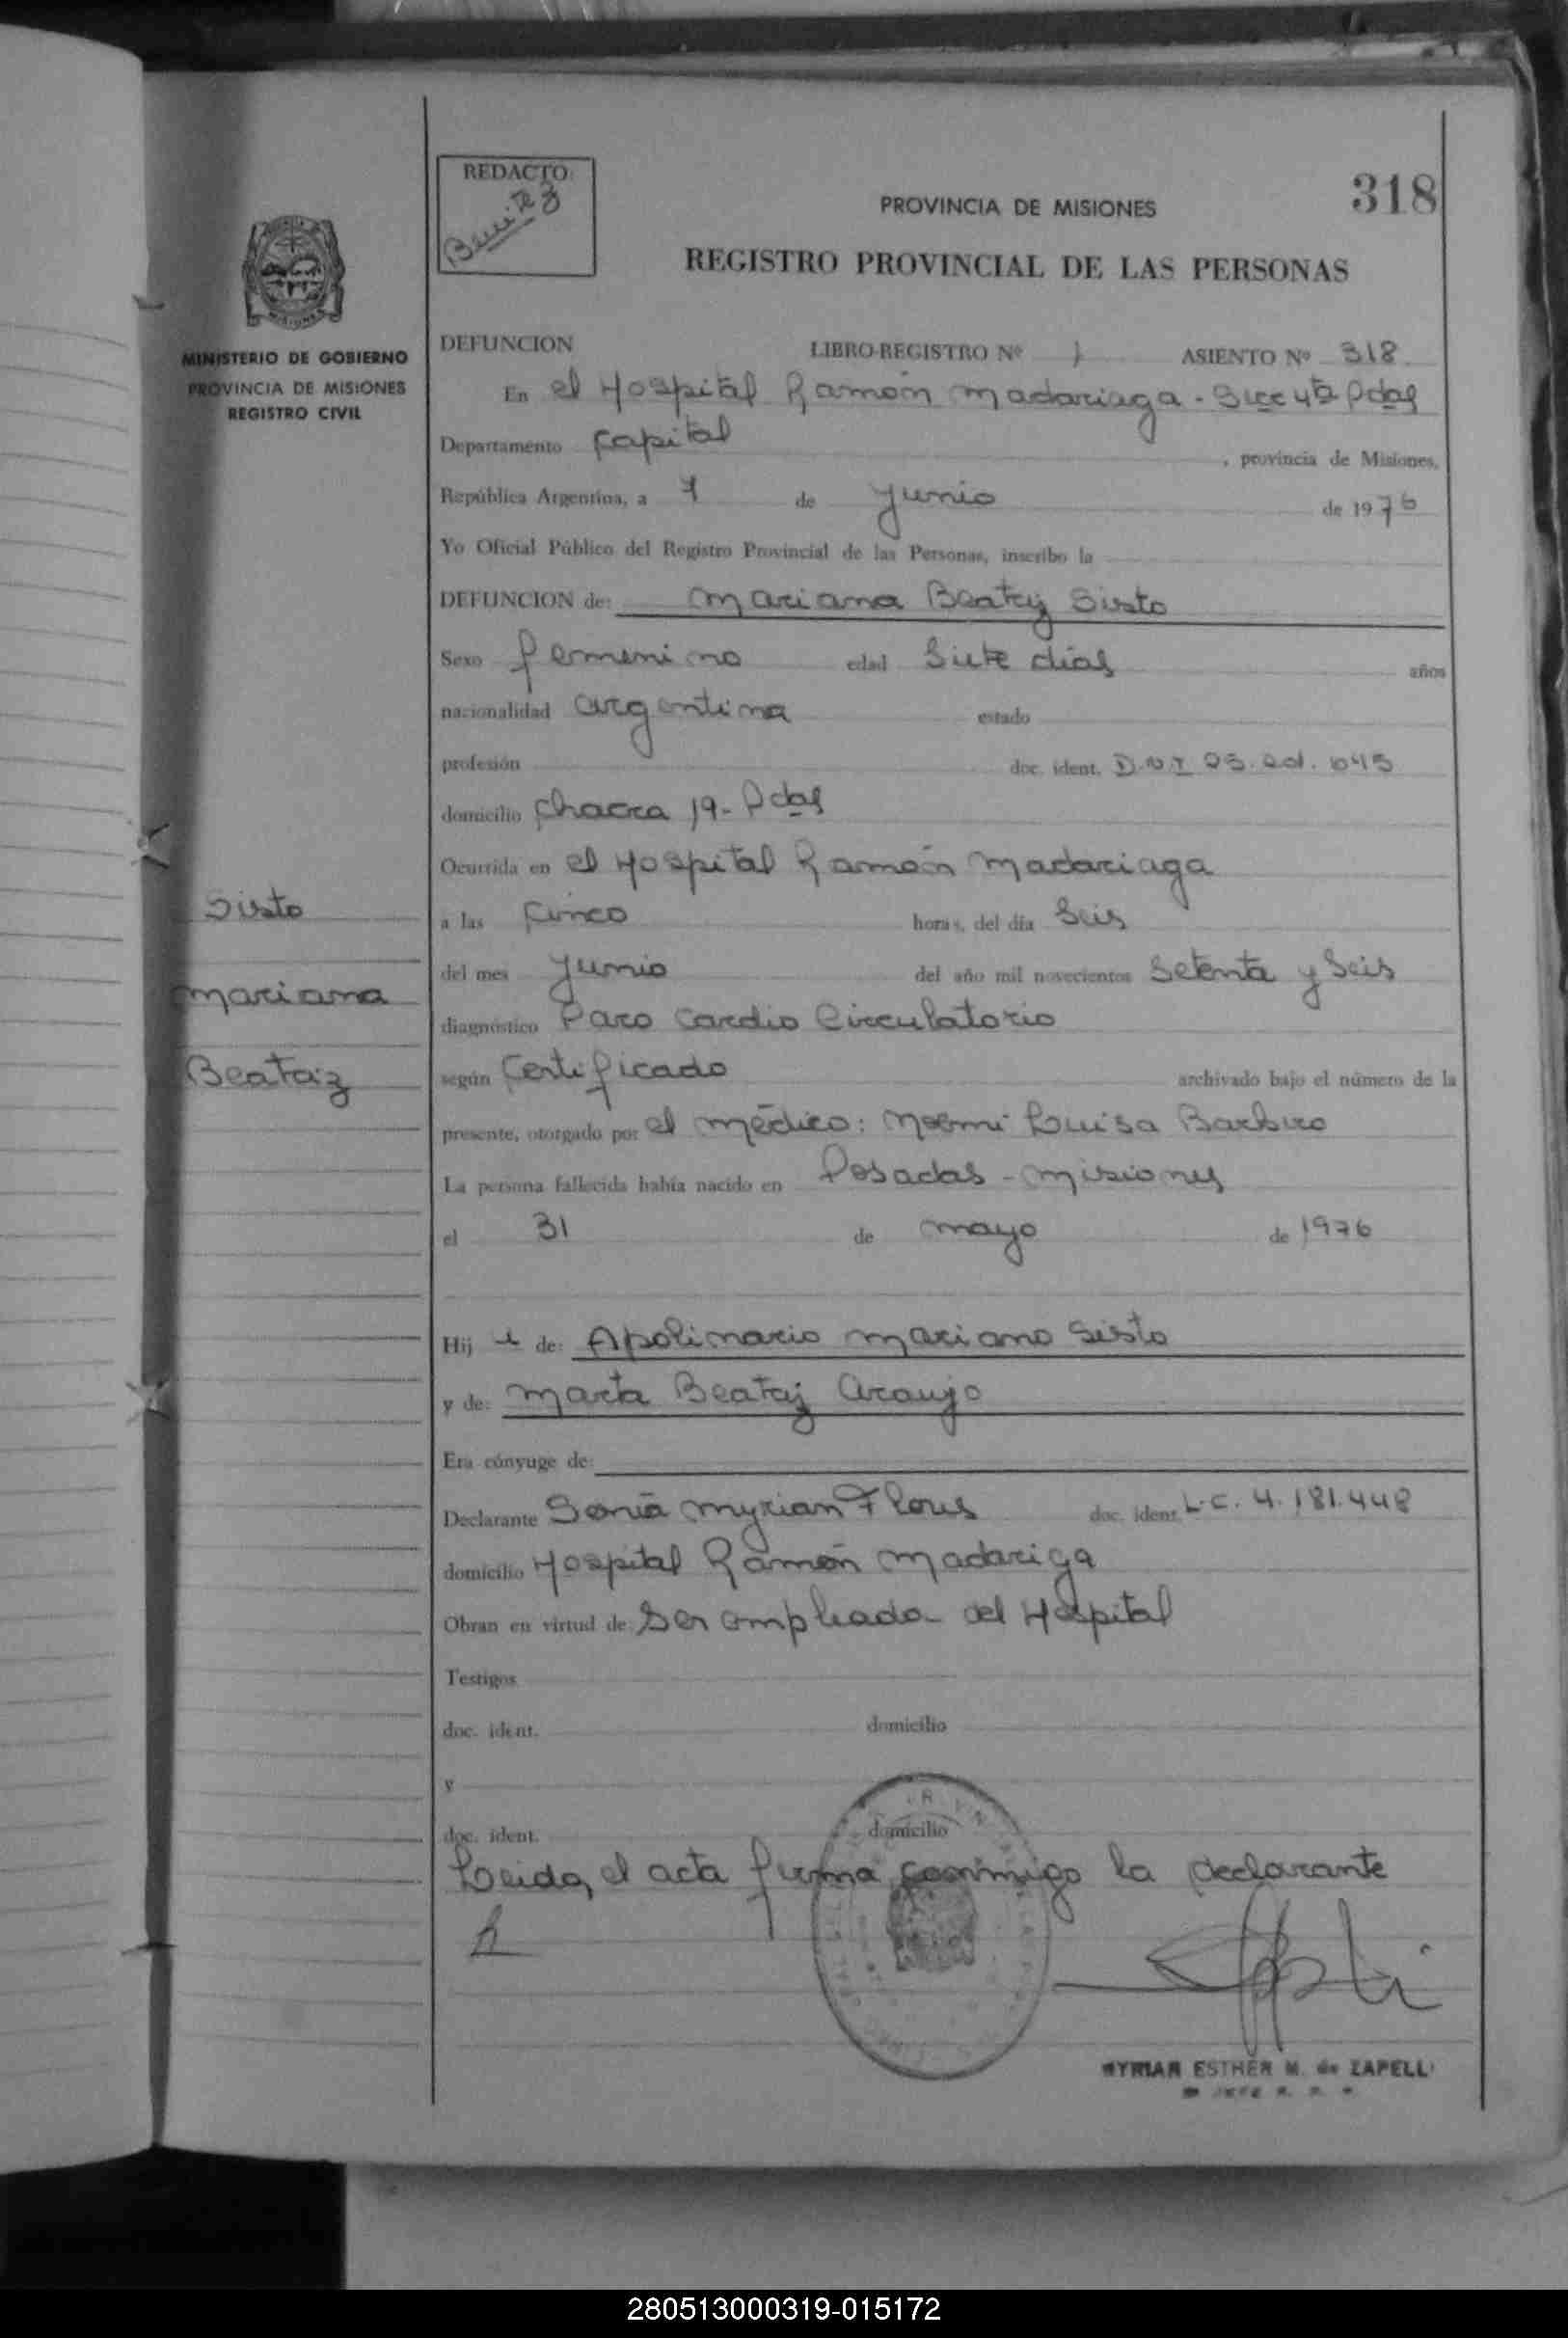 REDACTO:
Benitez
318
PROVINCIA DE MISIONES
REGISTRO PROVINCIAL DE LAS PERSONAS
MINISTERIO DE GOBIERNO
PROVINCIA DE MISIONES
REGISTRO CIVIL
DEFUNCION LIBRO-REGISTRO Nº 1 ASIENTO Nº 318
En el Hospital Ramón Madariaga - Secc 4ta Pdas
Departamento Capital, provincia de Misiones,
República Argentina, a 7 de Junio de 1976
Yo Oficial Público del Registro Provincial de las Personas, inscribo la
DEFUNCION de: Mariana Beatriz Sisto
Sexo femenino edad Siete días años
nacionalidad argentina estado
profesión doc. ident. D.N.I 25.201.045
domicilio Chacra 19 - Pdas
Ocurrida en el Hospital Ramón Madariaga
Sisto
a las Cinco horas, del día Seis
del mes Junio del año mil novecientos Setenta y Seis
Mariana
diagnóstico Paro Cardio Circulatorio
Beatriz
según Certificado archivado bajo el número de la
presente, otorgado por el médico: Noemi Luisa Barbiro
La persona fallecida había nacido en Posadas - Misiones
el 31 de mayo de 1976
Hij a de: Apolinario Mariano Sisto
y de: Marta Beatriz Araujo
Era cónyuge de:
Declarante Sonia Myrian Flores doc. ident. L.C. 4.181.448
domicilio Hospital Ramón Madariga
Obran en virtud de Ser empleada del Hospital
Testigos
doc. ident. domicilio
y
doc. ident. domicilio
Leida, el acta firma conmigo la declarante
MYRIAN ESTHER M. de ZAPELLI
280513000319-015172